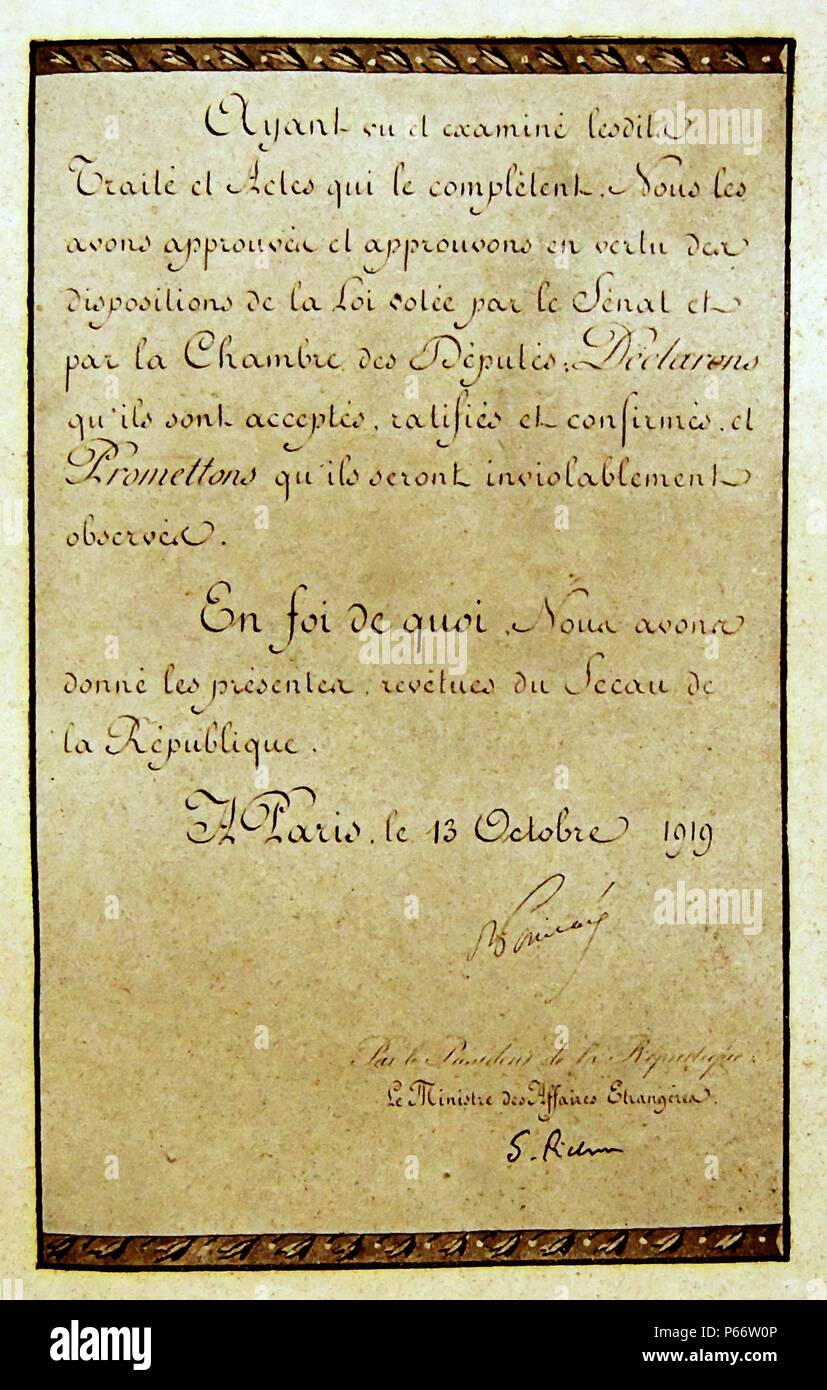 Ayant vu et examiné lesdits
Traité et Actes qui le complètent, Nous les
avons approuvés et approuvons en vertu des
dispositions de la Loi votée par le Sénat et
par la Chambre des Députés, Déclarons
qu'ils sont acceptés, ratifiés et confirmés, et
Promettons qu'ils seront inviolablement
observés.
En foi de quoi, Nous avons
donné les présentes, revêtues du Sceau de
la République.
A Paris, le 13 Octobre 1919
R Poincaré
Par le Président de la République:
Le Ministre des Affaires Etrangères.
S. Pichon
alamy
Image ID: P66W0P
www.alamy.com